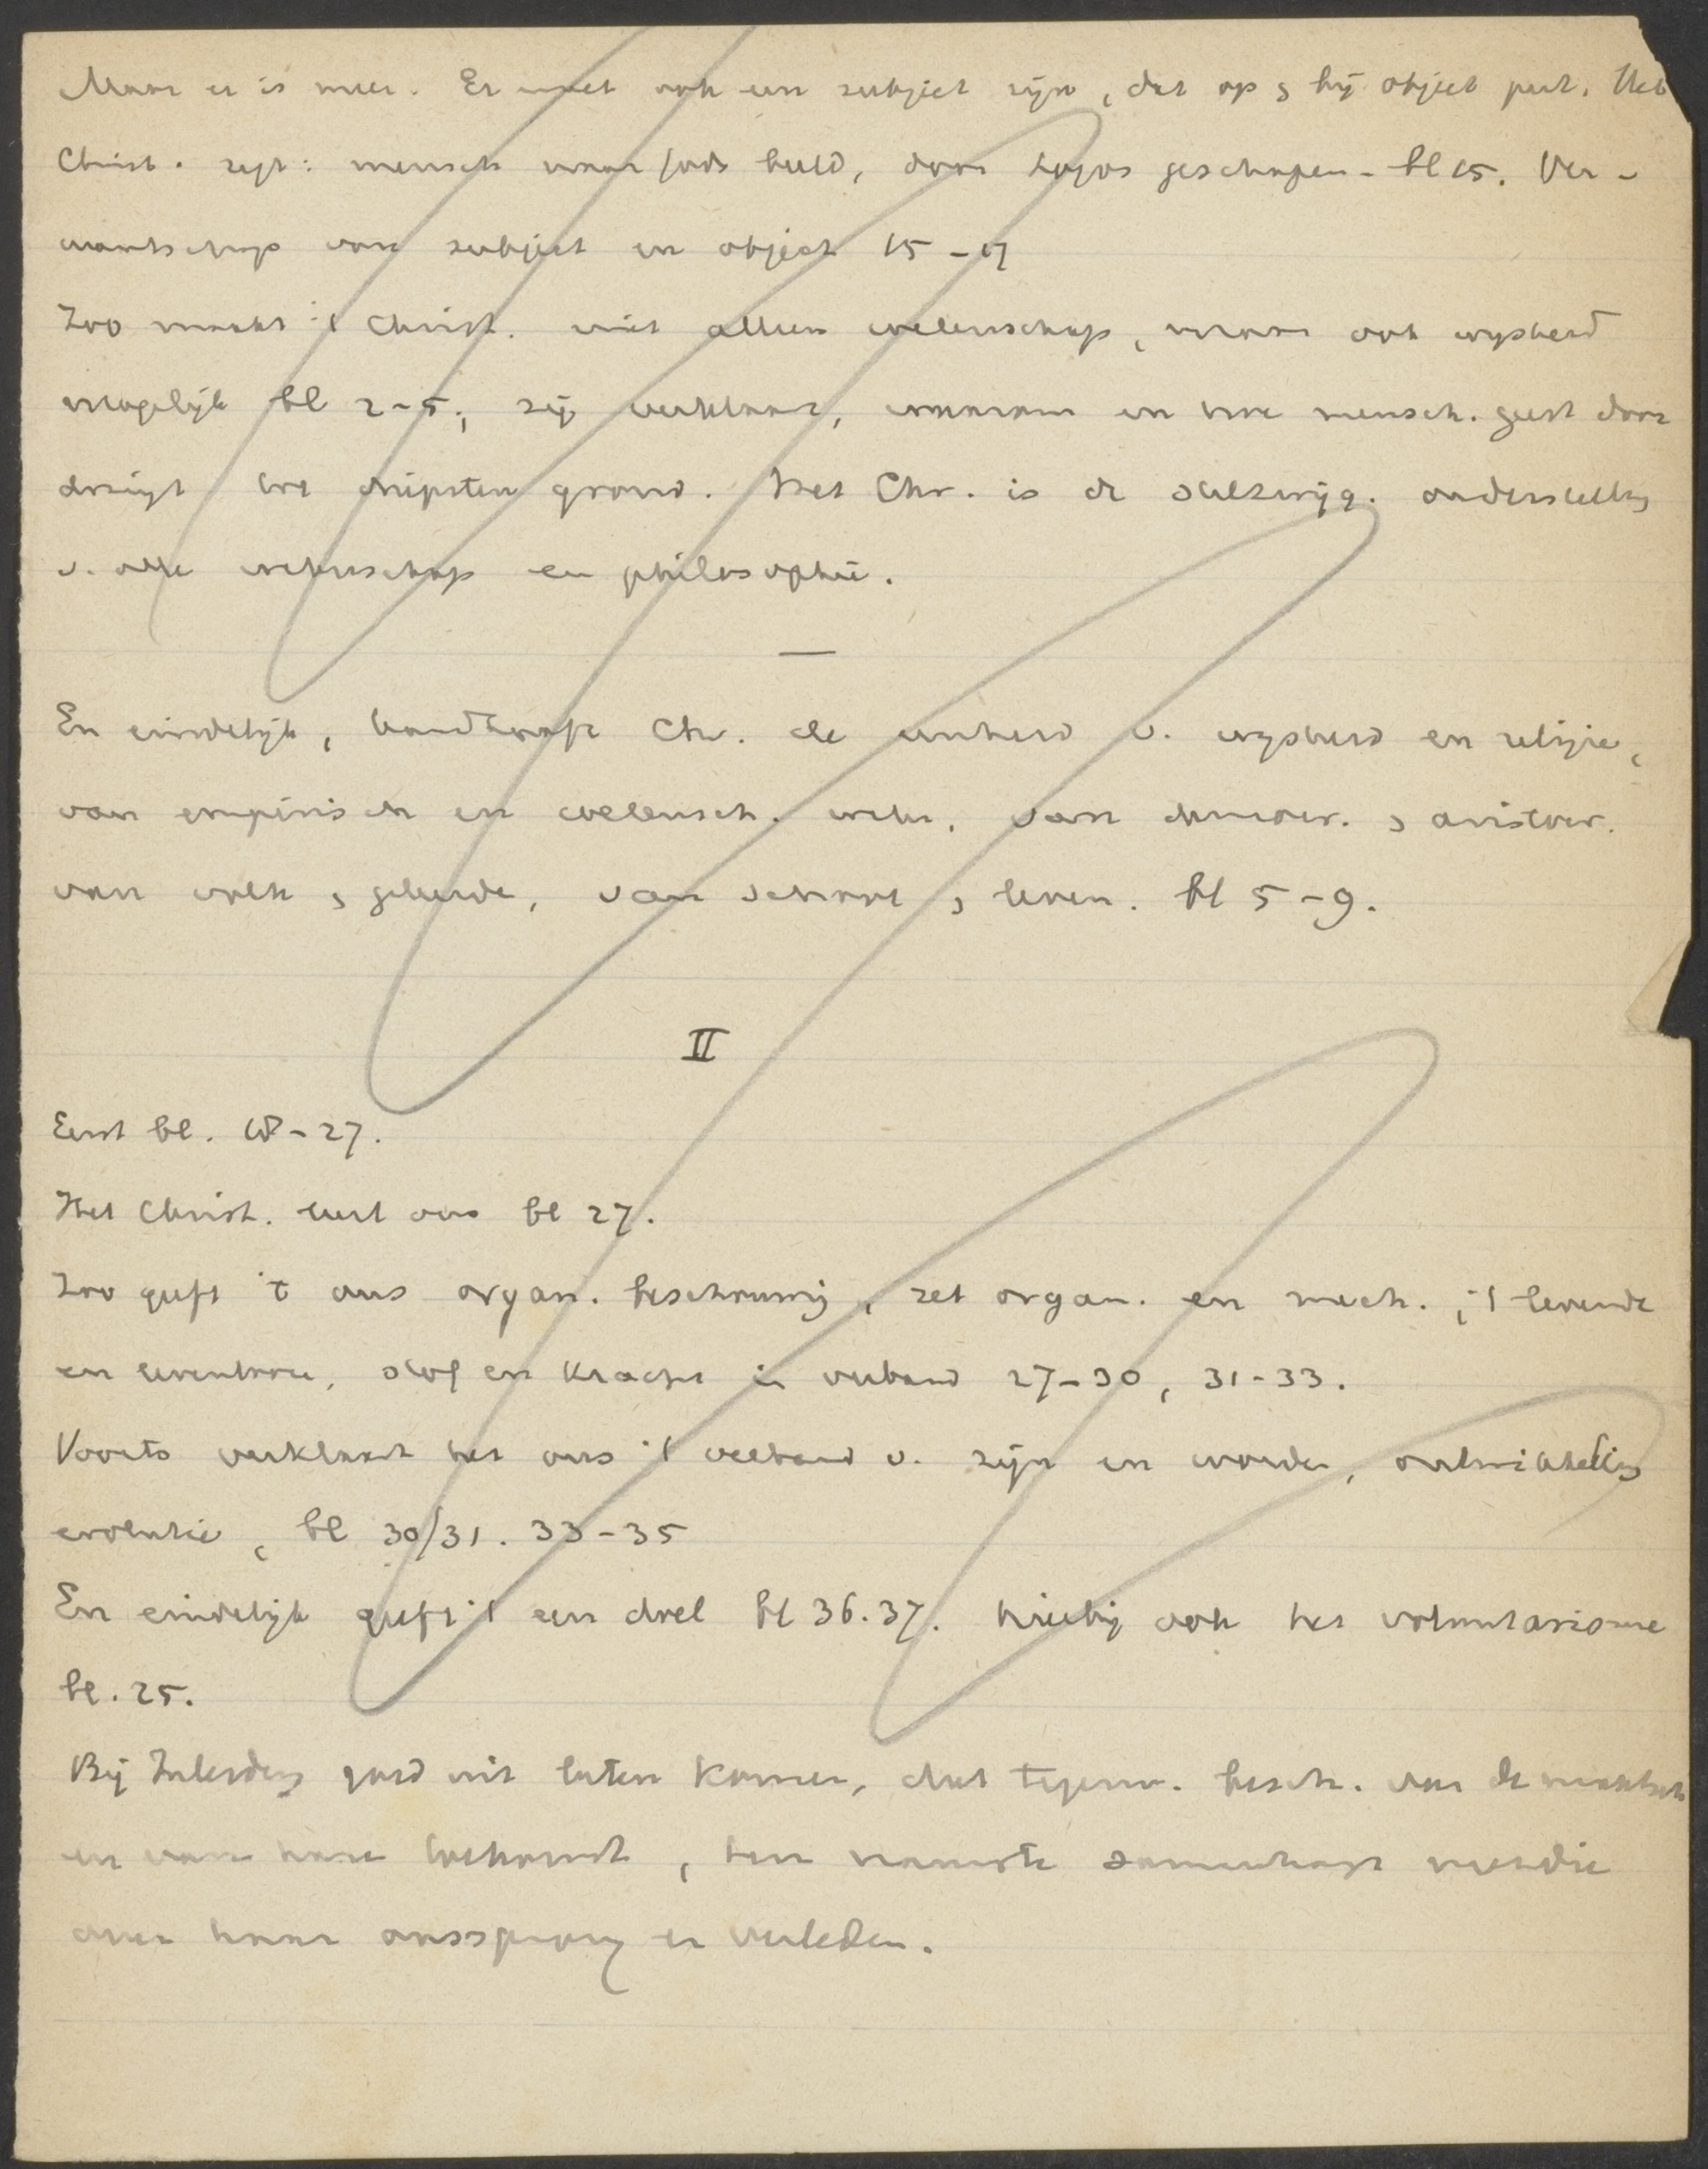 Maar er is meer. Er moet ook een subject zijn, dat op & bij object past. Het
Christ. zegt: mensch naar Gods beeld, door Logos geschapen - bl 15. Ver-
wantschap van subject en object 15-17
Zoo maakt 't Christ. niet alleen wetenschap, maar ook wysheid
mogelijk bl 2-5; zij verklaart, waarom en hoe mensch. geest door
dringt tot diepsten grond. Het Chr. is de stilzwijg. onderstelling
v. alle wetenschap en philosophie.
—
En eindelijk, handhaaft Chr. de eenheid v. wysheid en religie,
van empirisch en wetensch. weten, van democr. & aristocr.
van volk & geleerde, van school & leven. bl 5-9.
II
Eerst bl. 18-27.
Het Christ. leert ons bl 27.
Zoo geeft 't ons organ. beschouwing, zet organ. en mech., 't levende
en levenlooze, stof en kracht in verband 27-30, 31-33.
Voorts verklaart het ons 't verband v. zijn en worden, ontwikkeling
evolutie, bl 30/31. 33-35
En eindelijk geeft 't een doel bl 36.37. hierbij ook het voluntarisme
bl. 25.
Bij goed uit laten komen, dat tegenw. besch. van de maatsch
en van hare toekomst, ten nauwste samenhangt met die
over haar oorsprong en verleden.